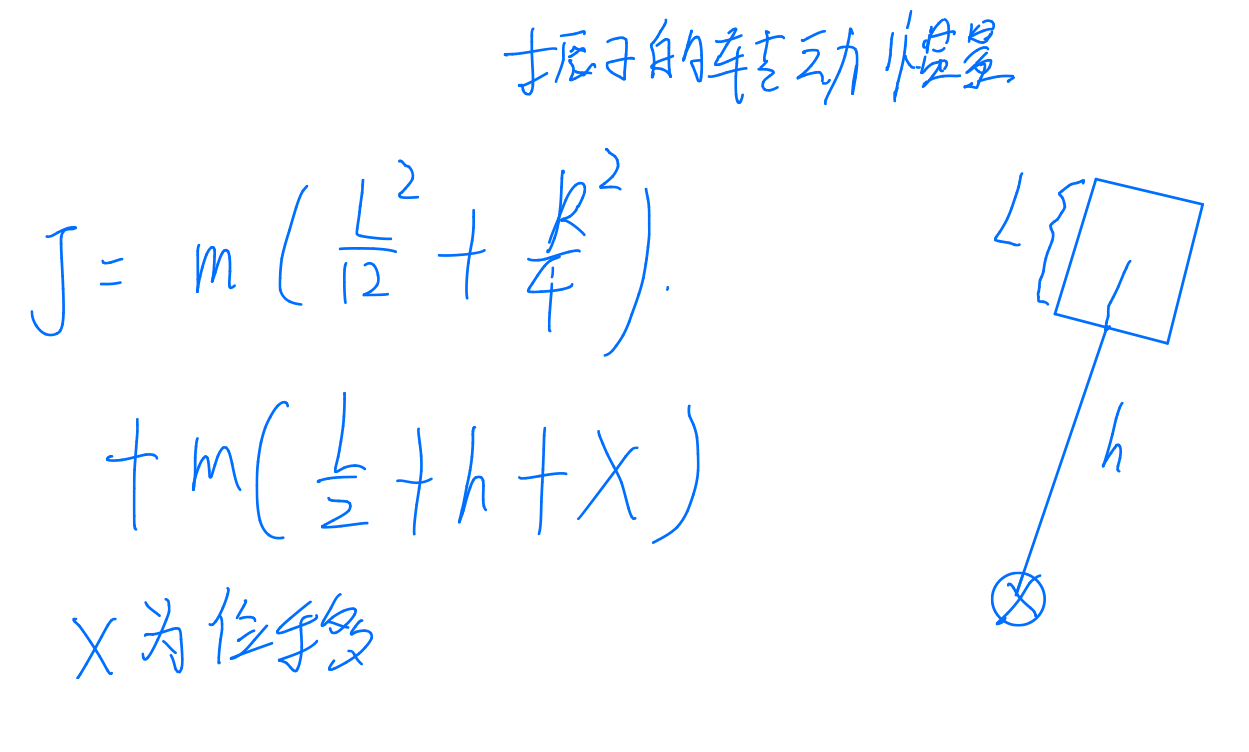 振子的转动惯量
J = m(L²/12 + R²/4).
+ m(L/2 + h + X)
X为位移
L
h
X